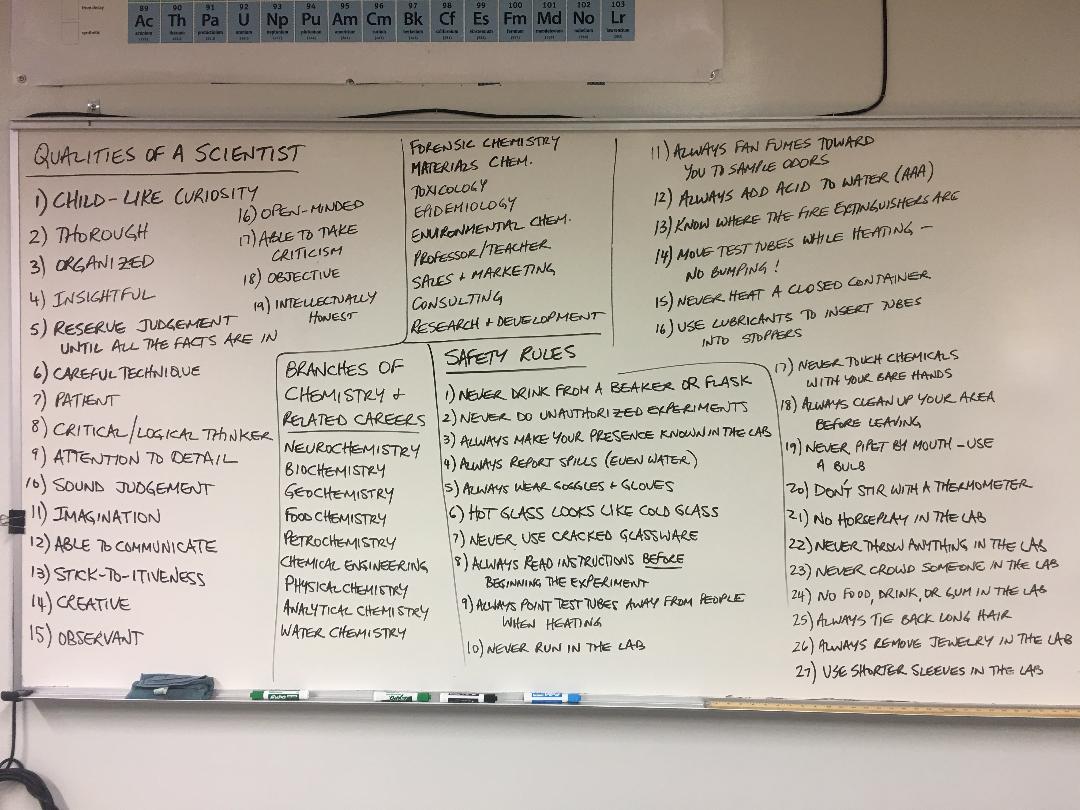 from decay
synthetic
89 90 91 92 93 94 95 96 97 98 99 100 101 102 103
Ac Th Pa U Np Pu Am Cm Bk Cf Es Fm Md No Lr
actinium thorium protactinium uranium neptunium plutonium americium curium berkelium californium einsteinium fermium mendelevium nobelium lawrencium
QUALITIES OF A SCIENTIST
1) CHILD-LIKE CURIOSITY
2) THOROUGH
3) ORGANIZED
4) INSIGHTFUL
5) RESERVE JUDGEMENT
UNTIL ALL THE FACTS ARE IN
6) CAREFUL TECHNIQUE
7) PATIENT
8) CRITICAL/LOGICAL THINKER
9) ATTENTION TO DETAIL
10) SOUND JUDGEMENT
11) IMAGINATION
12) ABLE TO COMMUNICATE
13) STICK-TO-ITIVENESS
14) CREATIVE
15) OBSERVANT
16) OPEN-MINDED
17) ABLE TO TAKE
CRITICISM
18) OBJECTIVE
19) INTELLECTUALLY
HONEST
BRANCHES OF
CHEMISTRY +
RELATED CAREERS
NEUROCHEMISTRY
BIOCHEMISTRY
GEOCHEMISTRY
FOOD CHEMISTRY
PETROCHEMISTRY
CHEMICAL ENGINEERING
PHYSICAL CHEMISTRY
ANALYTICAL CHEMISTRY
WATER CHEMISTRY
FORENSIC CHEMISTRY
MATERIALS CHEM.
TOXICOLOGY
EPIDEMIOLOGY
ENVIRONMENTAL CHEM.
PROFESSOR/TEACHER
SALES + MARKETING
CONSULTING
RESEARCH + DEVELOPMENT
SAFETY RULES
1) NEVER DRINK FROM A BEAKER OR FLASK
2) NEVER DO UNAUTHORIZED EXPERIMENTS
3) ALWAYS MAKE YOUR PRESENCE KNOWN IN THE LAB
4) ALWAYS REPORT SPILLS (EVEN WATER)
5) ALWAYS WEAR GOGGLES + GLOVES
6) HOT GLASS LOOKS LIKE COLD GLASS
7) NEVER USE CRACKED GLASSWARE
8) ALWAYS READ INSTRUCTIONS BEFORE
BEGINNING THE EXPERIMENT
9) ALWAYS POINT TEST TUBES AWAY FROM PEOPLE
WHEN HEATING
10) NEVER RUN IN THE LAB
11) ALWAYS FAN FUMES TOWARD
YOU TO SAMPLE ODORS
12) ALWAYS ADD ACID TO WATER (AAA)
13) KNOW WHERE THE FIRE EXTINGUISHERS ARE
14) MOVE TEST TUBES WHILE HEATING –
NO BUMPING!
15) NEVER HEAT A CLOSED CONTAINER
16) USE LUBRICANTS TO INSERT TUBES
INTO STOPPERS
17) NEVER TOUCH CHEMICALS
WITH YOUR BARE HANDS
18) ALWAYS CLEAN UP YOUR AREA
BEFORE LEAVING
19) NEVER PIPET BY MOUTH – USE
A BULB
20) DON'T STIR WITH A THERMOMETER
21) NO HORSEPLAY IN THE LAB
22) NEVER THROW ANYTHING IN THE LAB
23) NEVER CROWD SOMEONE IN THE LAB
24) NO FOOD, DRINK, OR GUM IN THE LAB
25) ALWAYS TIE BACK LONG HAIR
26) ALWAYS REMOVE JEWELRY IN THE LAB
27) USE SHORTER SLEEVES IN THE LAB